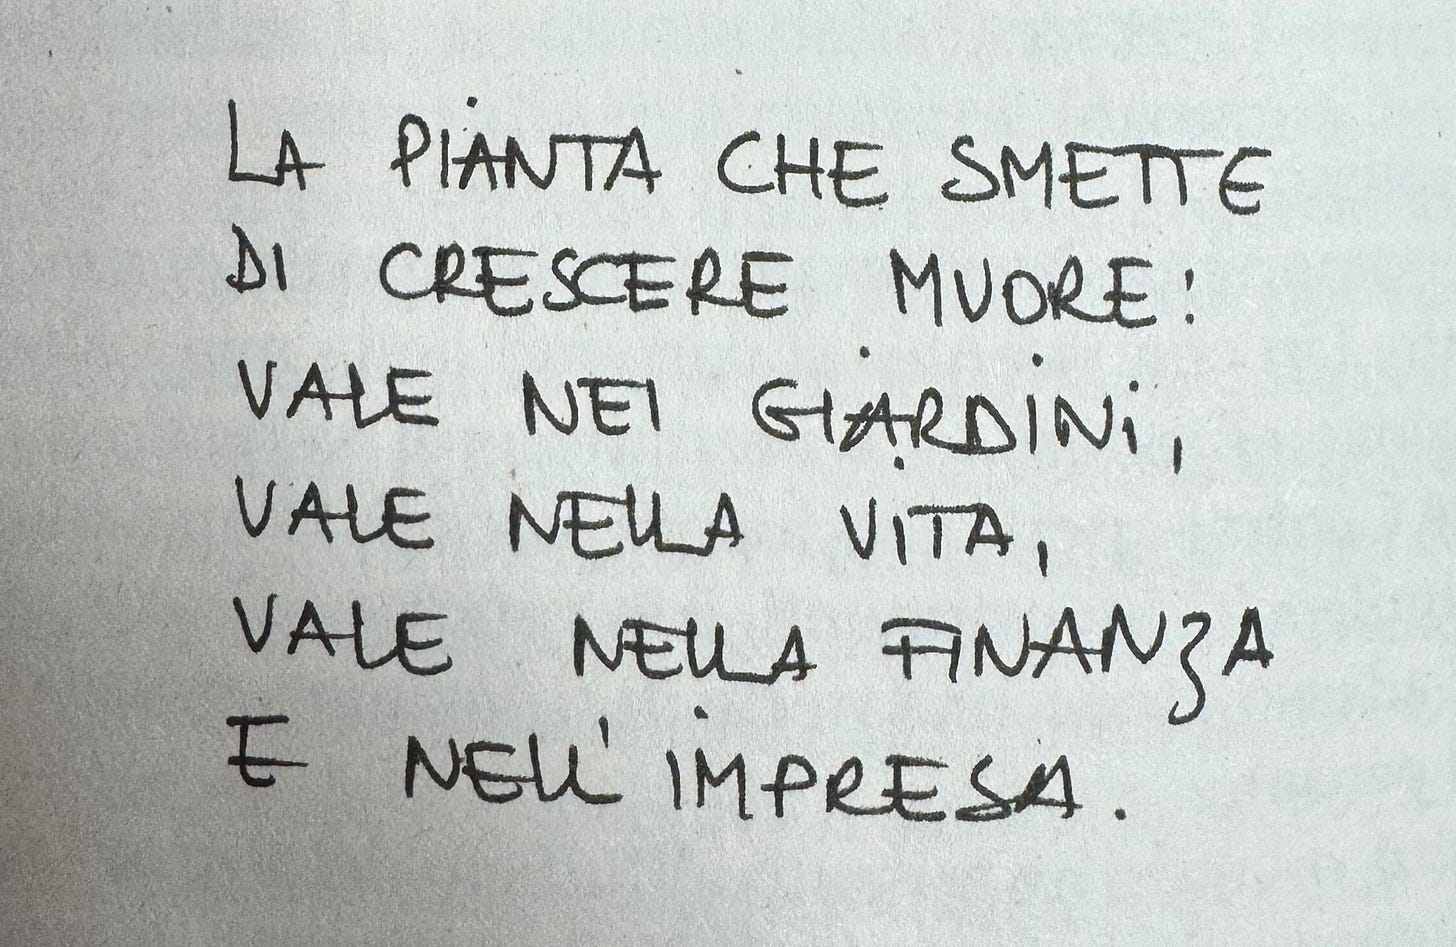 LA PIANTA CHE SMETTE
DI CRESCERE MUORE:
VALE NEI GIARDINI,
VALE NELLA VITA,
VALE NELLA FINANZA
E NELL'IMPRESA.